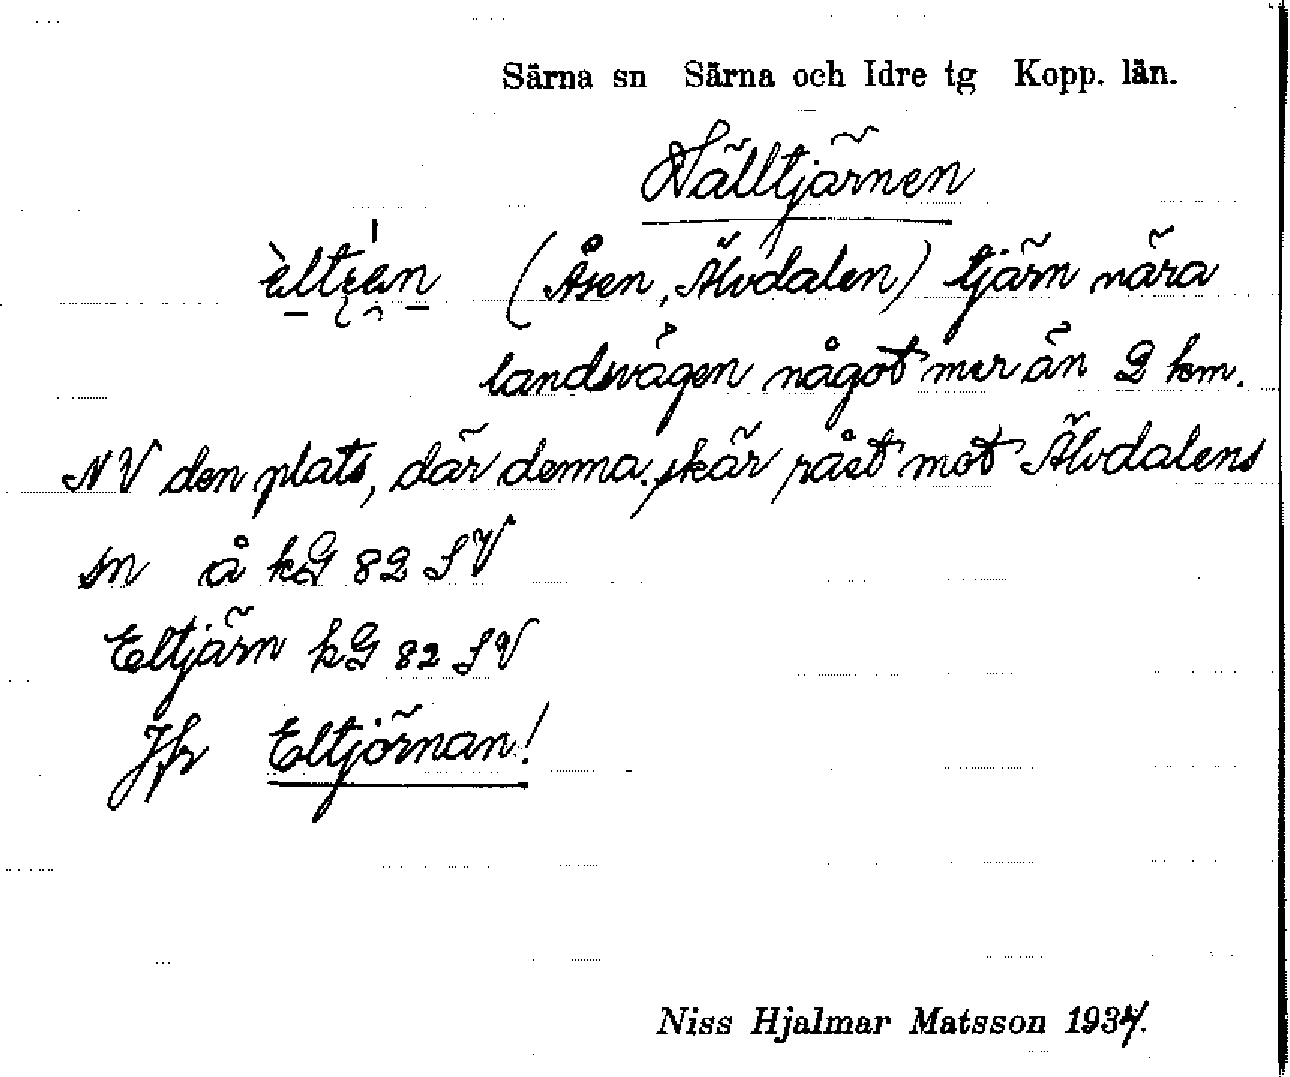 Särna sn Särna och Idre tg Kopp. län.
Hälltjärnen
(Åsen, Älvdalen) tjärn nära
landsvägen något mer än 2 km.
NV den plats, där denna skär råset mot Älvdalens
sn å kG 82 SV
Eltjärn kG 82 SV
Jfr Eltjörnan!
Niss Hjalmar Matsson 1934.